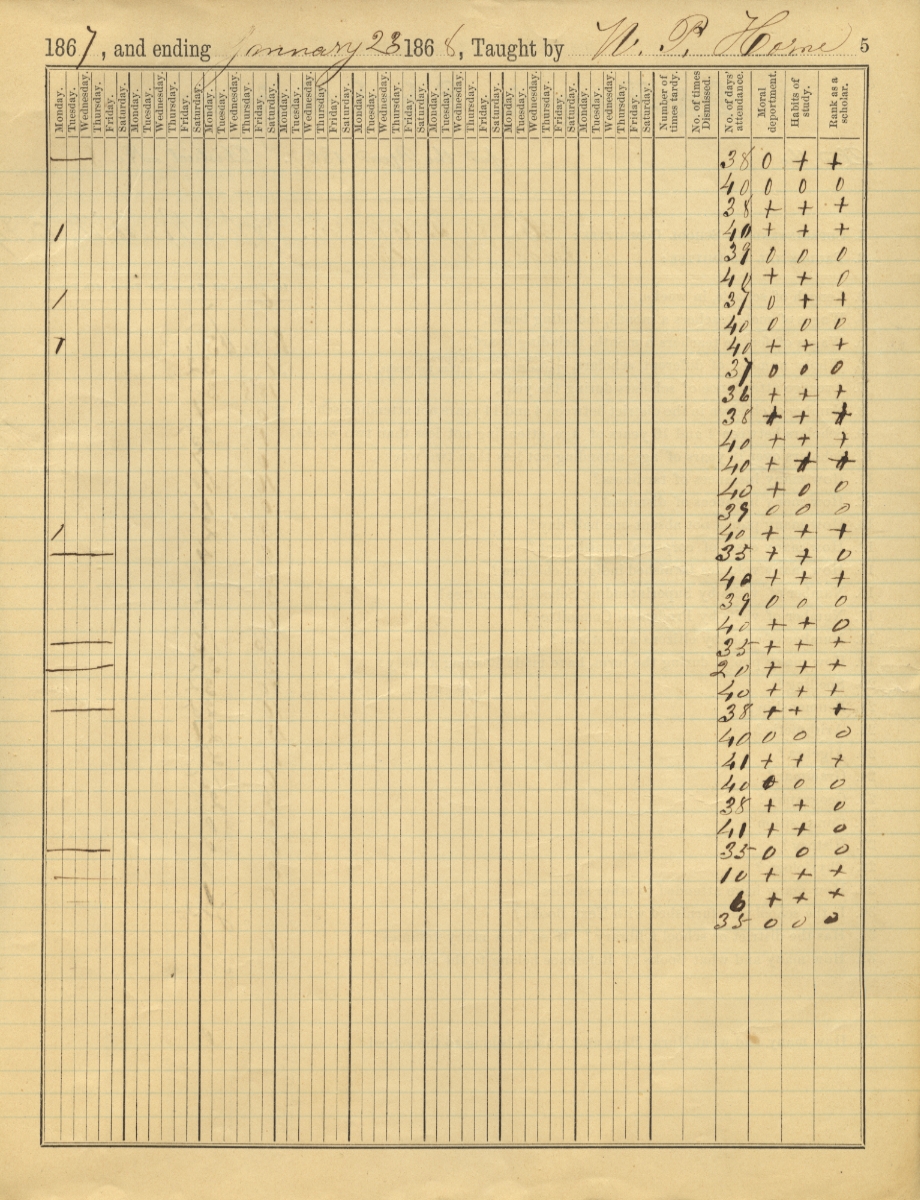 1867, and ending January 23 1868, Taught by W. P. Horne 5
Monday. Tuesday. Wednesday. Thursday. Friday. Saturday. Monday. Tuesday. Wednesday. Thursday. Friday. Saturday. Monday. Tuesday. Wednesday. Thursday. Friday. Saturday. Monday. Tuesday. Wednesday. Thursday. Friday. Saturday. Monday. Tuesday. Wednesday. Thursday. Friday. Saturday. Monday. Tuesday. Wednesday. Thursday. Friday. Saturday. Monday. Tuesday. Wednesday. Thursday. Friday. Saturday. Monday. Tuesday. Wednesday. Thursday. Friday. Saturday. Number of times tardy. No. of times Dismissed. No. of days' attendance. Moral deportment. Habits of study. Rank as a scholar.
— 38 0 + +
40 0 0 0
38 + + +
/ 40 + + +
39 0 0 0
40 + + 0
/ 37 0 + +
40 0 0 0
1 40 + + +
37 0 0 0
36 + + +
38 + + +
40 + + +
40 + + +
40 + 0 0
39 0 0 0
/ 40 + + +
— 35 + + 0
40 + + +
39 0 0 0
40 + + 0
— 35 + + +
— 20 + + +
40 + + +
— 38 + + +
40 0 0 0
41 + + +
40 0 0 0
38 + + 0
41 + + 0
— 35 0 0 0
— 10 + + +
6 + + +
35 0 0 0